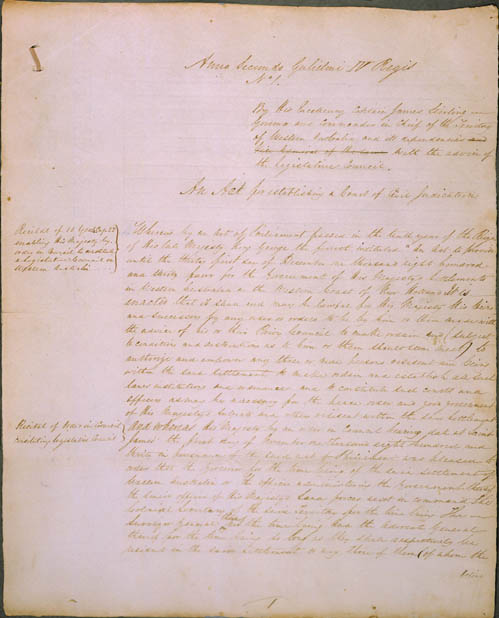 Anno Secundo Gulielmi IV Regis
No 1.
By His Excellency Captain James Stirling
Governor and Commander in Chief of the Territory
of Western Australia and its dependencies and
with the advice of
the Legislative Council.
An Act for establishing a Court of Civil Judicature
Recital of 10 Geo
enabling His Majesty by
order in Council to establish
a Legislative Council in
Western Australia
Whereas by an Act of Parliament passed in the tenth year of the Reign
of His late Majesty King George the Fourth instituted "An Act to provide
until the thirty first day of December one thousand eight hundred
and thirty four for the Government of His Majesty's Settlements
in Western Australia on the Western Coast of New Holland It is
enacted that it shall and may be lawful for His Majesty His heirs
and successors by any order or orders to be by him or them made with
the advice of his or their Privy Council to make ordain and (subject
to conditions and restrictions as to him or them should seem meet) to
authorize and empower any three or more persons resident and being
within the said Settlements to make ordain and establish all such
laws institutions and ordinances and to constitute such courts and
officers as may be necessary for the peace order and good government
of His Majesty's Subjects and others resident within the said Settlements
Recital of Order in Council
constituting Legislative Council
And whereas His Majesty by an order in Council bearing date at Saint
James' the first day of November one thousand eight hundred and
thirty in pursuance of the said act of Parliament was pleased to
order that the Governor for the time being of the said settlements of
Western Australia or the officer administering the Government thereof
the senior officer of His Majesty's Land forces next in command The
Colonial Secretary of the said Territory for the time being The
Surveyor General for the time being And the Advocate General
thereof for the time being so long as they shall respectively be
resident in the said Settlement or any three of them (of whom the